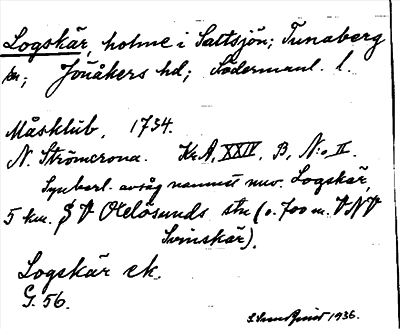 Logskär, holme i Saltsjön; Tunaberg
sn; Jönåkers hd; Södermanl. l.
Måsklub, 1734.
N. Strömcrona. Kr.A, XXIV, B, N:o II.
Synberl. avsåg namnet nuv. Logskär,
5 km. S V Oxelösunds stn (c. 700 m. V N V
Svinskär).
Logskär ek.
G. 56.
1936.